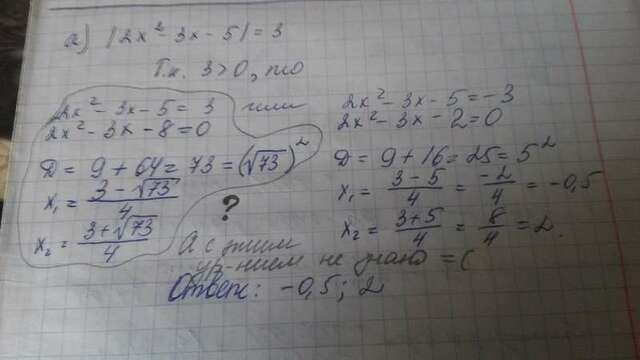 а) |2x² - 3x - 5| = 3
Т.к. 3 > 0, то
2x² - 3x - 5 = 3 или
2x² - 3x - 8 = 0
D = 9 + 64 = 73 = (√73)²
x₁ = (3 - √73)/4
x₂ = (3 + √73)/4
?
2x² - 3x - 5 = -3
2x² - 3x - 2 = 0
D = 9 + 16 = 25 = 5²
x₁ = (3 - 5)/4 = -2/4 = -0,5
x₂ = (3 + 5)/4 = 8/4 = 2.
А с этим
ур-нием не знаю =(
Ответ: -0,5; 2